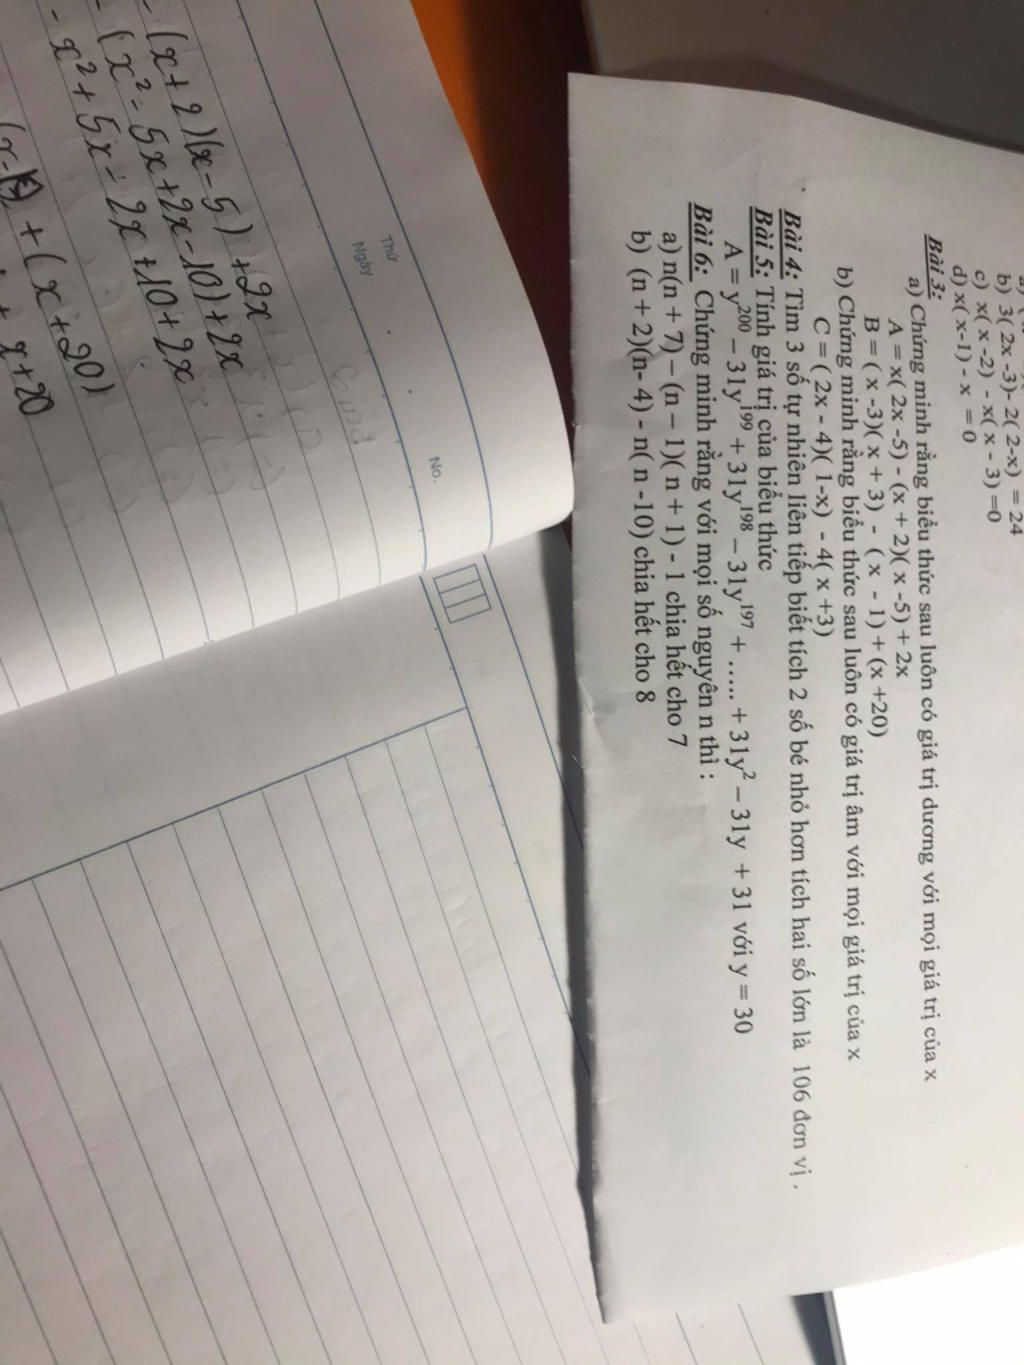 b) 3( 2x -3)- 2( 2-x) = 24
c) x( x -2) - x( x - 3) =0
d) x( x-1) - x = 0
Bài 3:
a) Chứng minh rằng biểu thức sau luôn có giá trị dương với mọi giá trị của x
A = x( 2x -5) - (x + 2)( x -5) + 2x
B = ( x -3)( x + 3) - ( x - 1) + (x +20)
b) Chứng minh rằng biểu thức sau luôn có giá trị âm với mọi giá trị của x
C = ( 2x - 4)( 1-x) - 4( x +3)
Bài 4: Tìm 3 số tự nhiên liên tiếp biết tích 2 số bé nhỏ hơn tích hai số lớn là 106 đơn vị .
Bài 5: Tính giá trị của biểu thức
A = y²⁰⁰ – 31y¹⁹⁹ + 31y¹⁹⁸ – 31y¹⁹⁷ + ….. + 31y² – 31y + 31 với y = 30
Bài 6: Chứng minh rằng với mọi số nguyên n thì :
a) n(n + 7) – (n – 1)( n + 1) - 1 chia hết cho 7
b) (n + 2)(n- 4) - n( n -10) chia hết cho 8
Thứ
Ngày
No.
- (x+2)(x-5)+2x
- (x²- 5x+2x-10)+2x
- x²+ 5x- 2x +10+2x
+ (x+20)
+ x+20